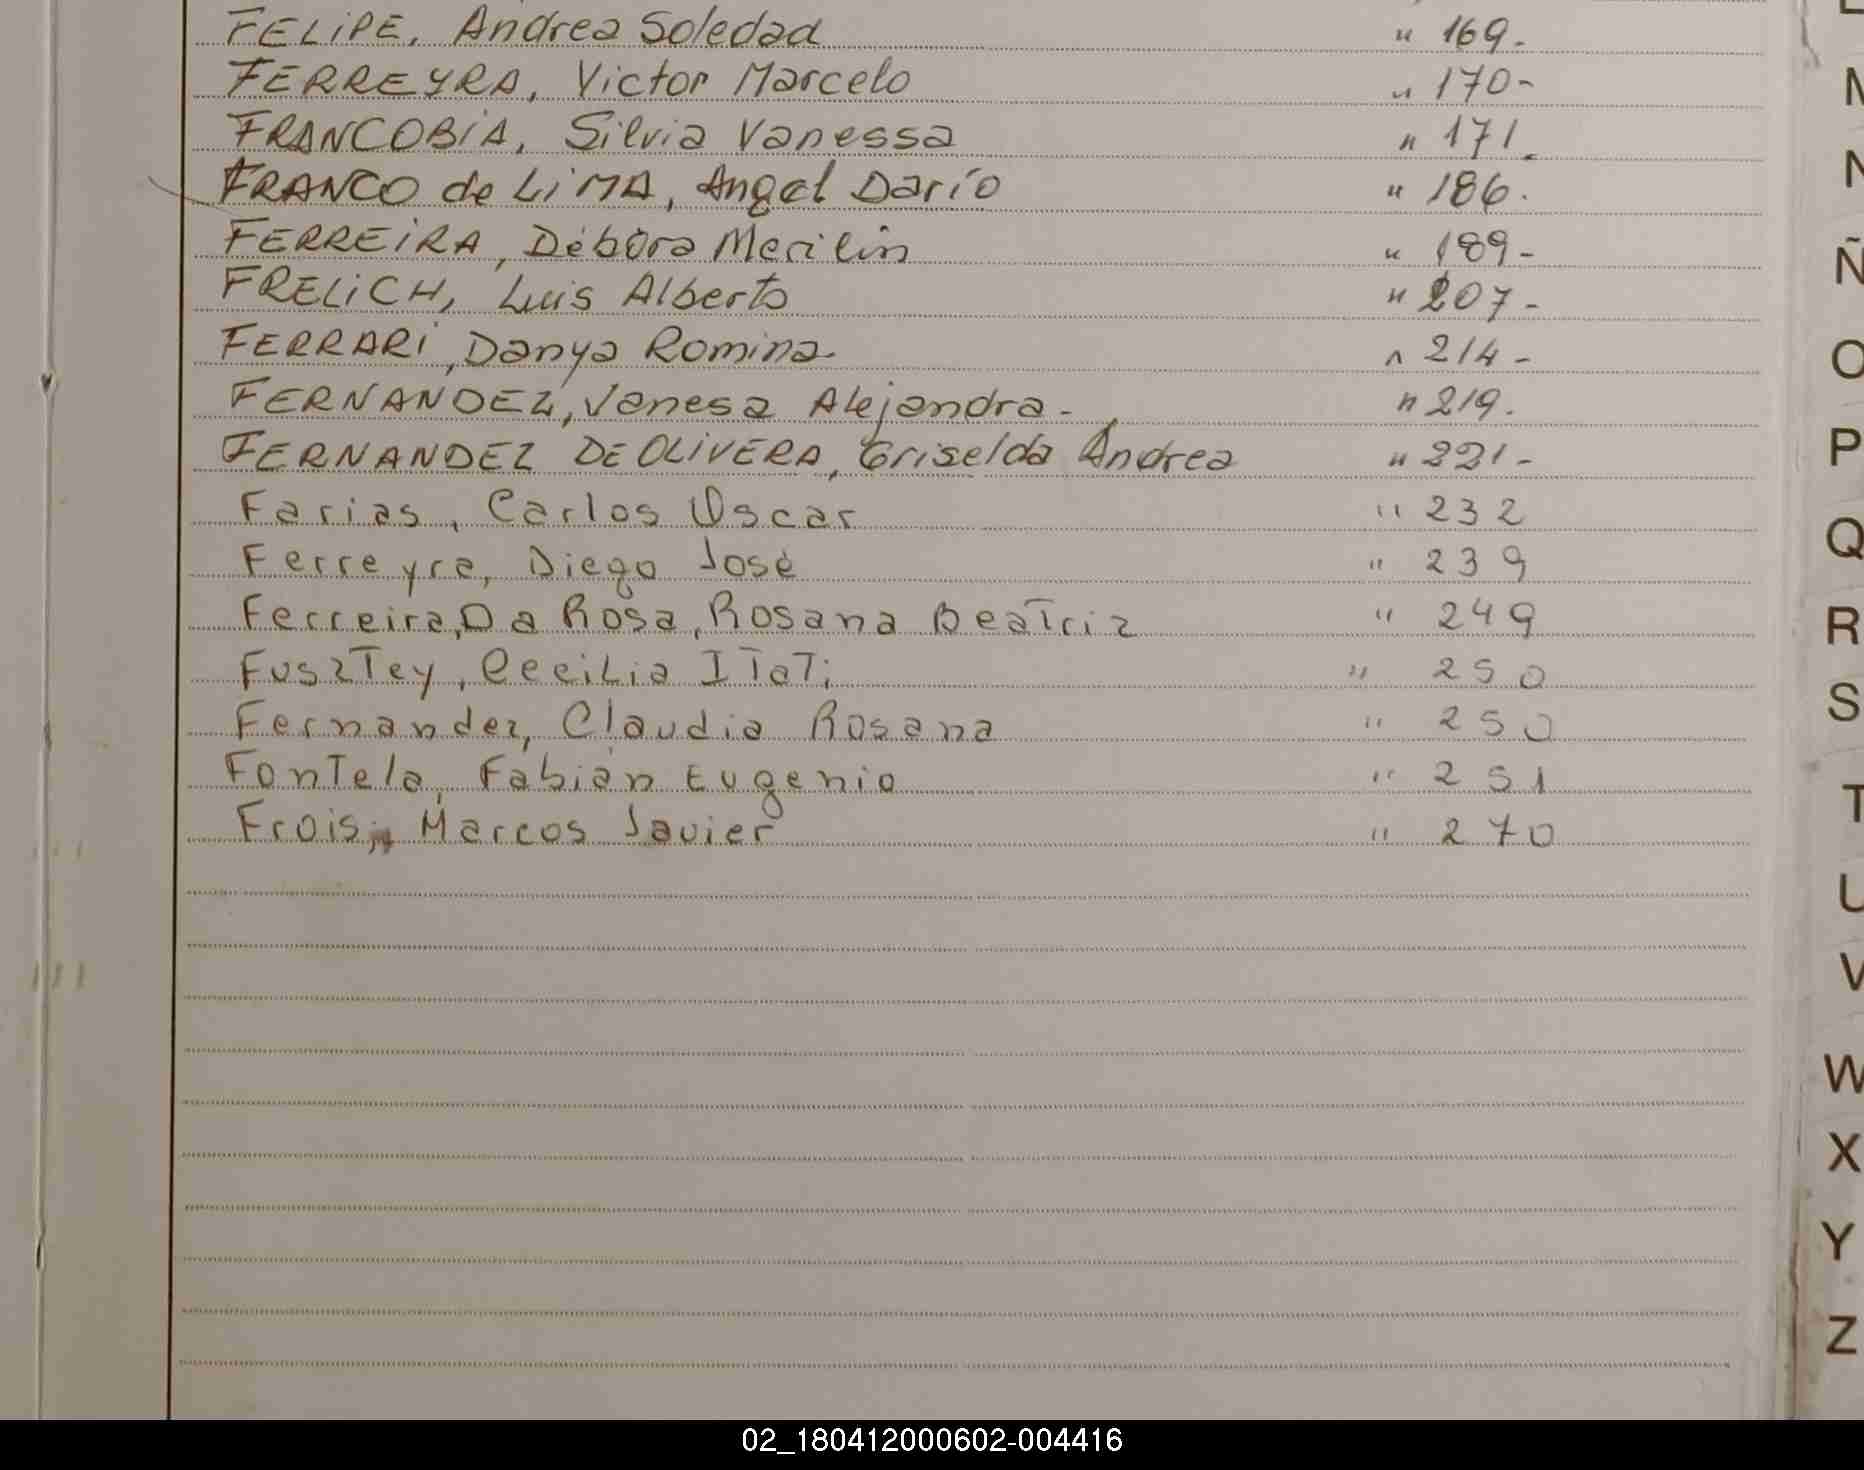 FELiPE, Andrea Soledad " 169.
FERREYRA, Victor Marcelo " 170-
FRANCOBiA, Silvia Vanessa " 171.
FRANCO de LiMA, Angel Darío " 186.
FERREiRA, Débora Merilin " 189-
FRELiCH, Luis Alberto " 207-
FERRARi, Danya Romina " 214-
FERNANDEZ, Vanesa Alejandra- " 219.
FERNANDEZ DE OLiVERA, Griselda Andrea " 221-
Farias, Carlos Oscar " 232
Ferreyra, Diego José " 239
Ferreira, Da Rosa, Rosana Beatriz " 249
Fusztey, Cecilia Itati " 250
Fernandez, Claudia Rosana " 250
Fontela, Fabián Eugenio " 251
Frois, Marcos Javier " 270
Ñ
O
P
Q
R
S
T
U
V
W
X
Y
Z
02_180412000602-004416